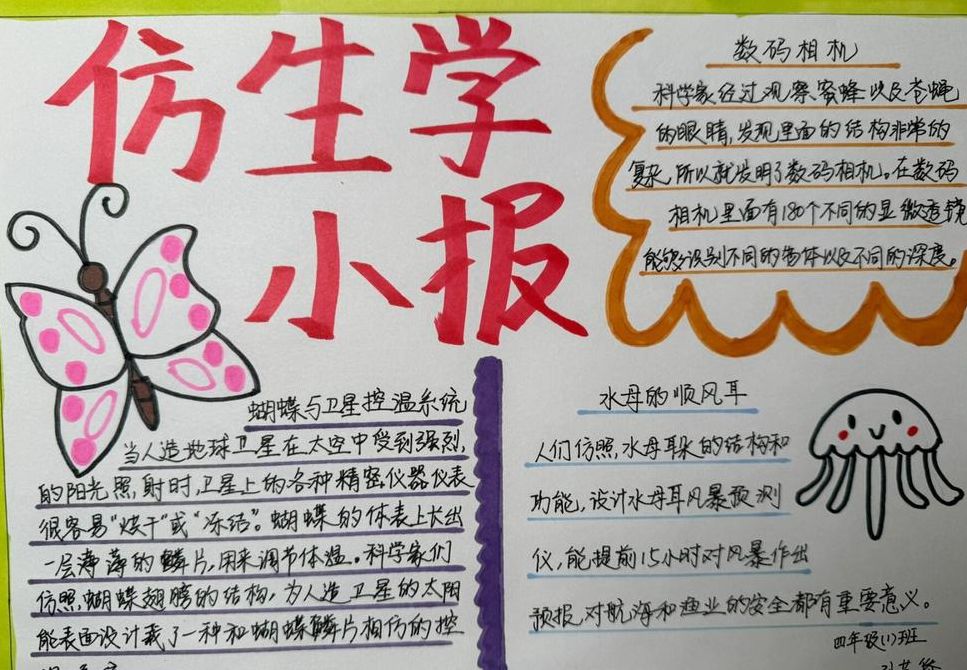 仿生学
小报
数码相机
科学家经过观察蜜蜂以及苍蝇
的眼睛,发现里面的结构非常的
复杂,所以就发明了数码相机。在数码
相机里面有180个不同的显微透镜
能够识别不同的物体以及不同的深度。
蝴蝶与卫星控温系统
当人造地球卫星在太空中受到强烈,
的阳光照,射时,卫星上的各种精密,仪器仪表
很容易“烘干”或“冻结”。蝴蝶的体表上长出
一层薄薄的鳞片,用来调节体温。科学家们
仿照,蝴蝶翅膀的结构,为人造卫星的太阳
能表面设计裁了一种和蝴蝶鳞片相仿的控
水母的顺风耳
人们仿照,水母耳朵的结构和
功能,设计水母耳风暴预测
仪,能提前15小时对风暴作出
预报,对航海和渔业的安全都有重要意义。
四年级(1)班